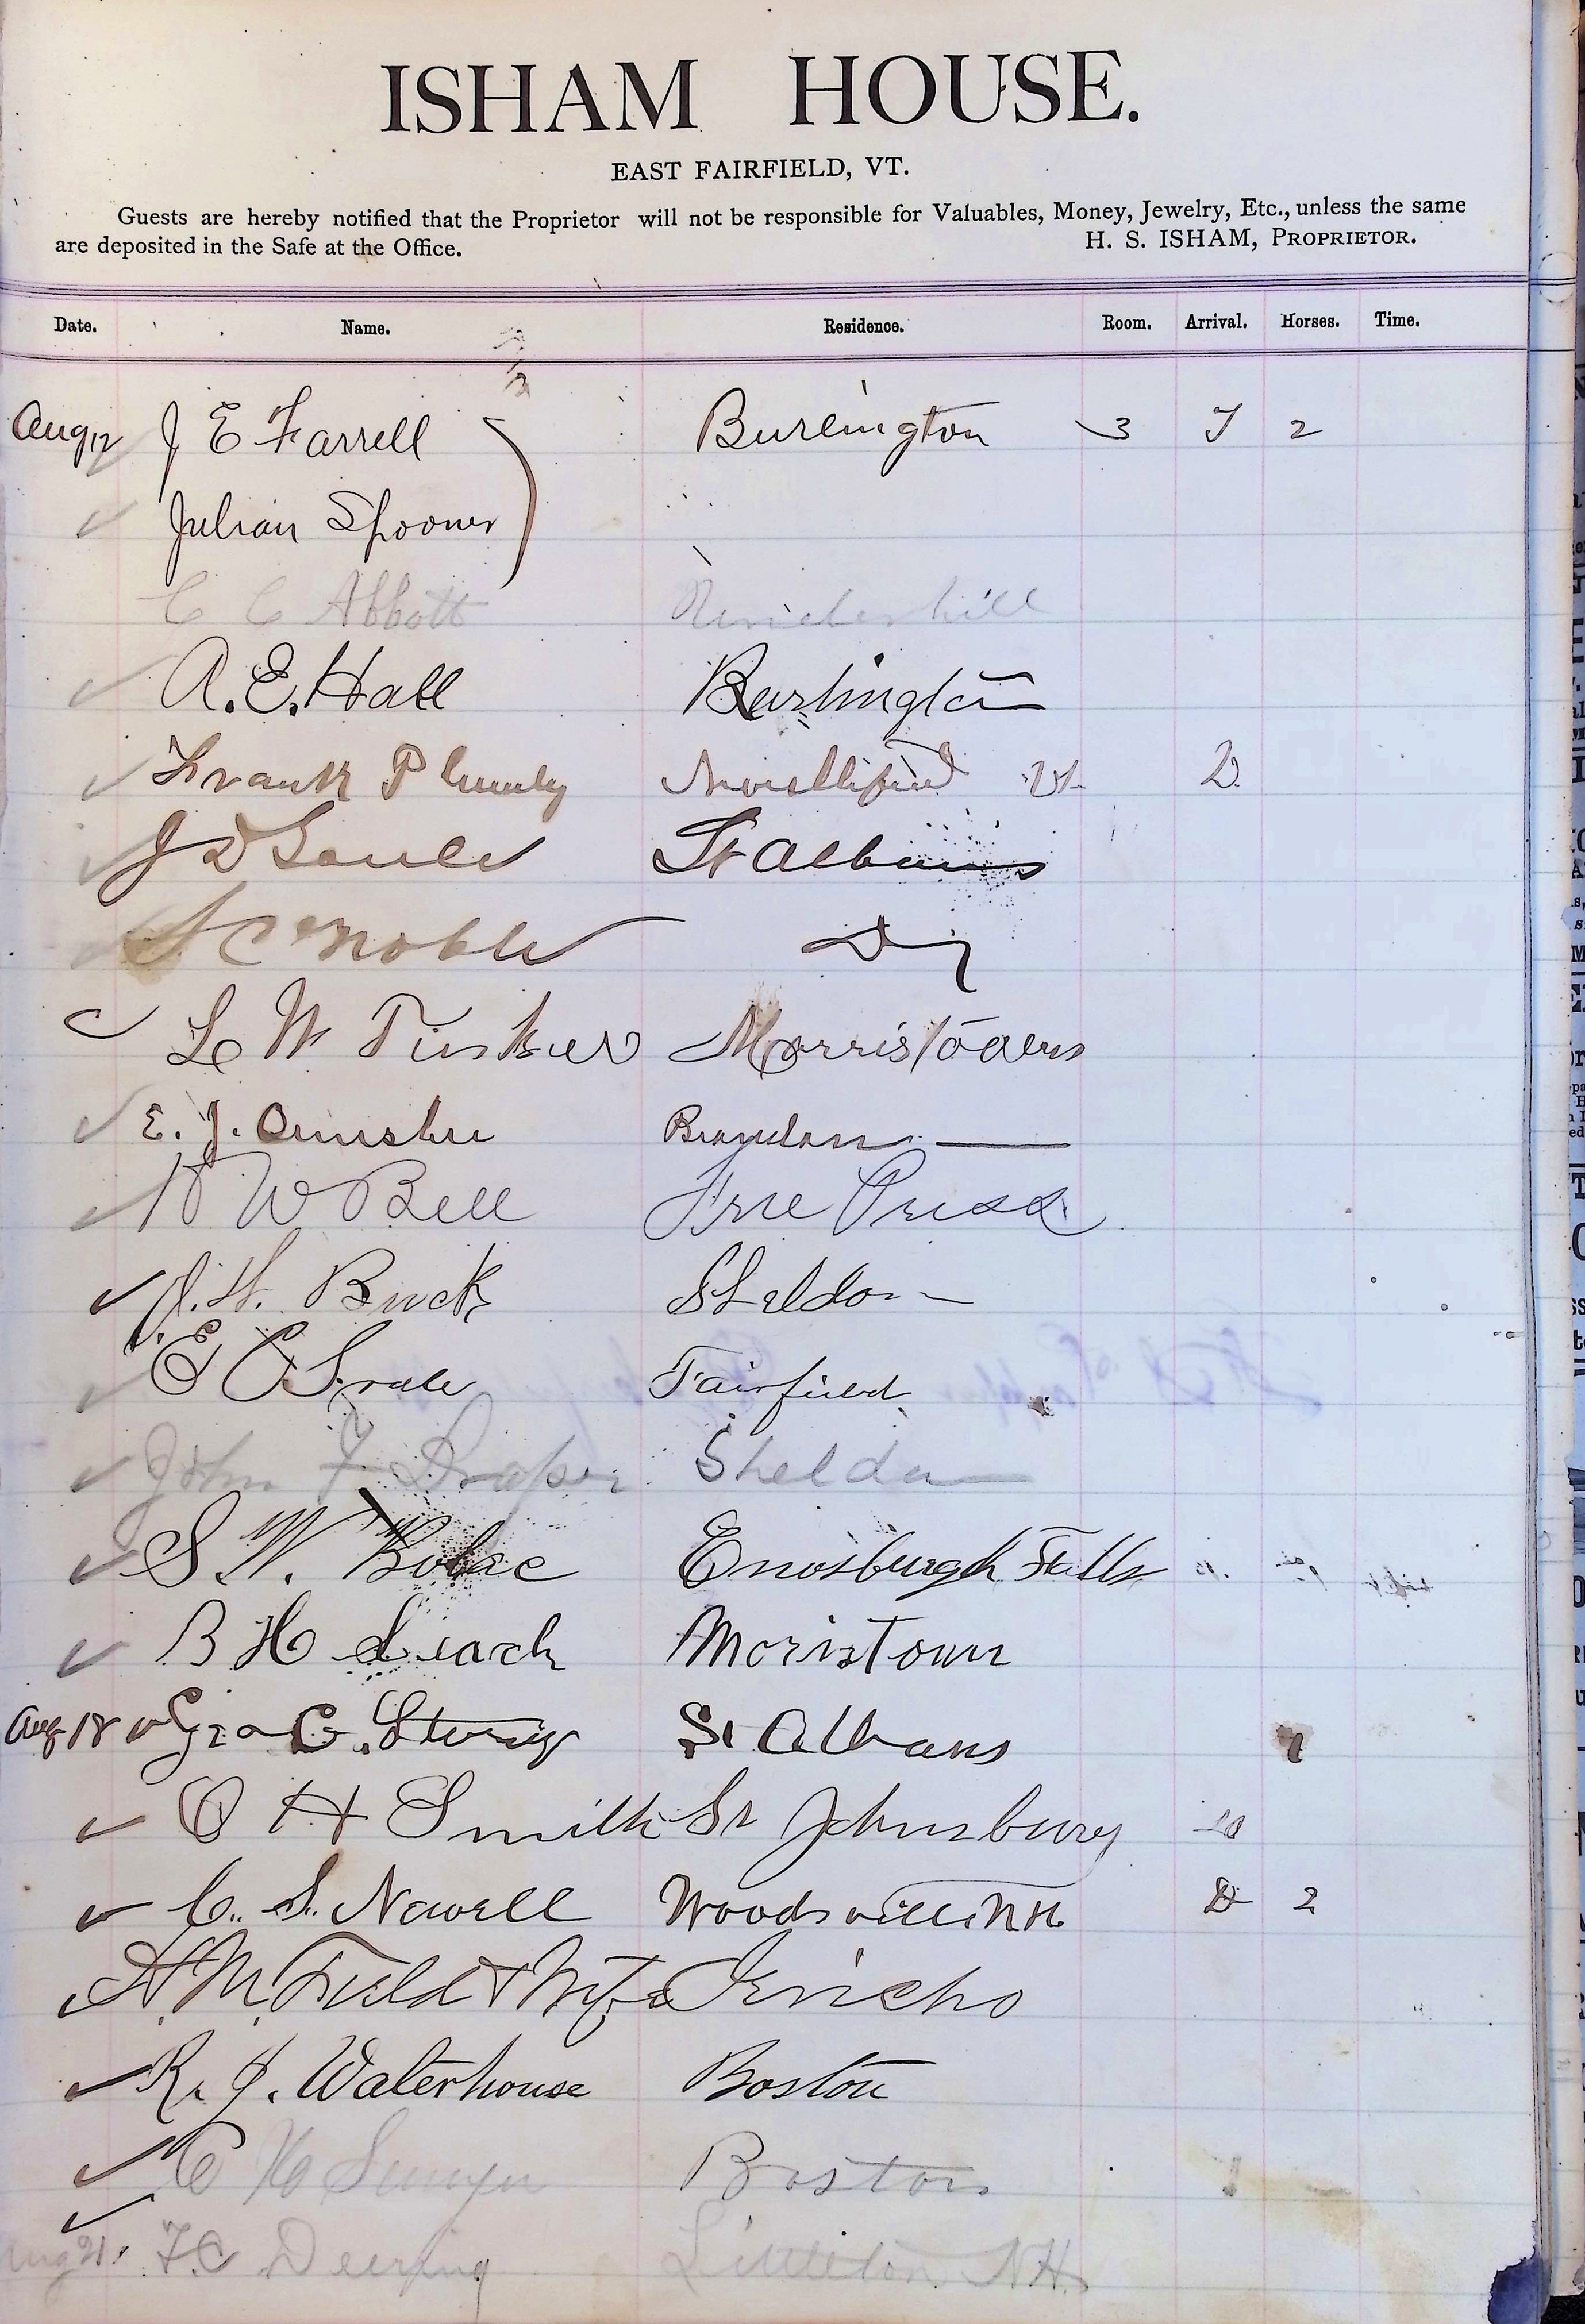 ISHAM HOUSE.
EAST FAIRFIELD, VT.
Guests are hereby notified that the Proprietor will not be responsible for Valuables, Money, Jewelry, Etc., unless the same
are deposited in the Safe at the Office. H. S. ISHAM, PROPRIETOR.
Date. Name. Residence. Room. Arrival. Horses. Time.
Aug 12 J E Farrell Burlington 3 T 2
Julian Spooner
C C Abbott Underhill
A. E. Hall Burlington
Frank Plumly Northfield Vt. D.
J D St Albans
S C Noble Do
L W Morristown
E. J. Ormsbee Brandon
W Bell Free Press
J. H. Buck Sheldon
E C Soule Fairfield
John F Draper Sheldon
S W. Enosburgh Falls
B H Leach Moristown
Aug 18 Geo C. St Albans 1
O H Smith St Johnsbury
C. S. Newell Woodsville N H D 2
A. M. Field & Wife Jericho
R. J. Waterhouse Boston
C H Boston
Aug 21 F. C Deering Littleton NH.